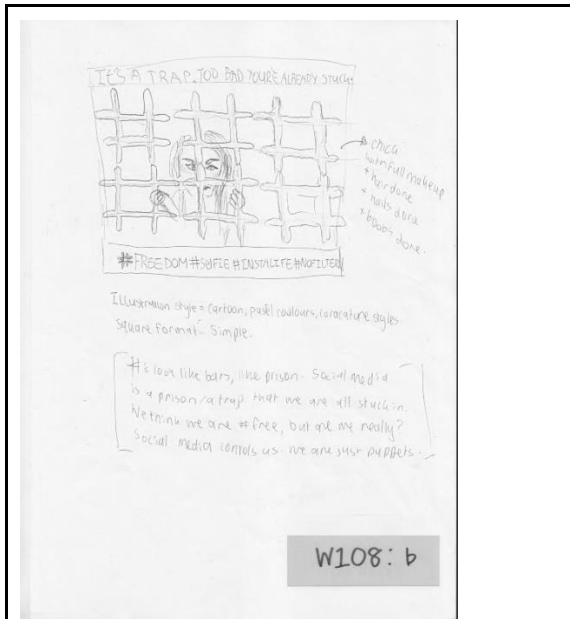 IT'S A TRAP. TOO BAD YOUR'E ALREADY STUCK.
chick
with full makeup
+ hair done
+ nails done
+ boobs done.
#FREEDOM #SELFIE #INSTALIFE #NOFILTER
Illustration style = cartoon, pastel coulours, caracature styles
Square format - Simple.
#'s look like bars, like prison. Social media
is a prison/a trap that we are all stuck in.
We think we are #free, but are we really?
Social media controls us. We are just puppets.
W108: b